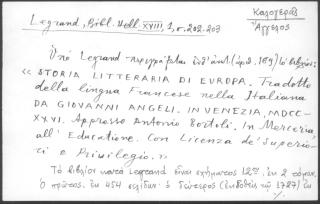 Legrand, Bibl. Hell. XVIII, 1, σ. 202-203
Καλογερᾶς
Ἄγγελος
Ὑπὸ Legrand περιγράφεται ὑπ' ἀριθ. (ἀρ. 169) τὸ βιβλίον:
« STORIA LITTERARIA DI EUROPA. Tradotto
della lingua Francese nella Italiana
DA GIOVANNI ANGELI. IN VENEZIA, MDCC-
XXVI. Appresso Antonio Bortoli. In Merceria,
all' Educatione. Con Licenza de' Superio-
ri e Privilegio. »
Τὸ βιβλίον κατὰ Legrand εἶναι σχήματος 12ου, ἐν 2 τόμοις.
Ὁ πρῶτος ἐκ 454 σελίδων· ὁ δεύτερος (ἐκδοθεὶς τῷ 1727) ἐκ